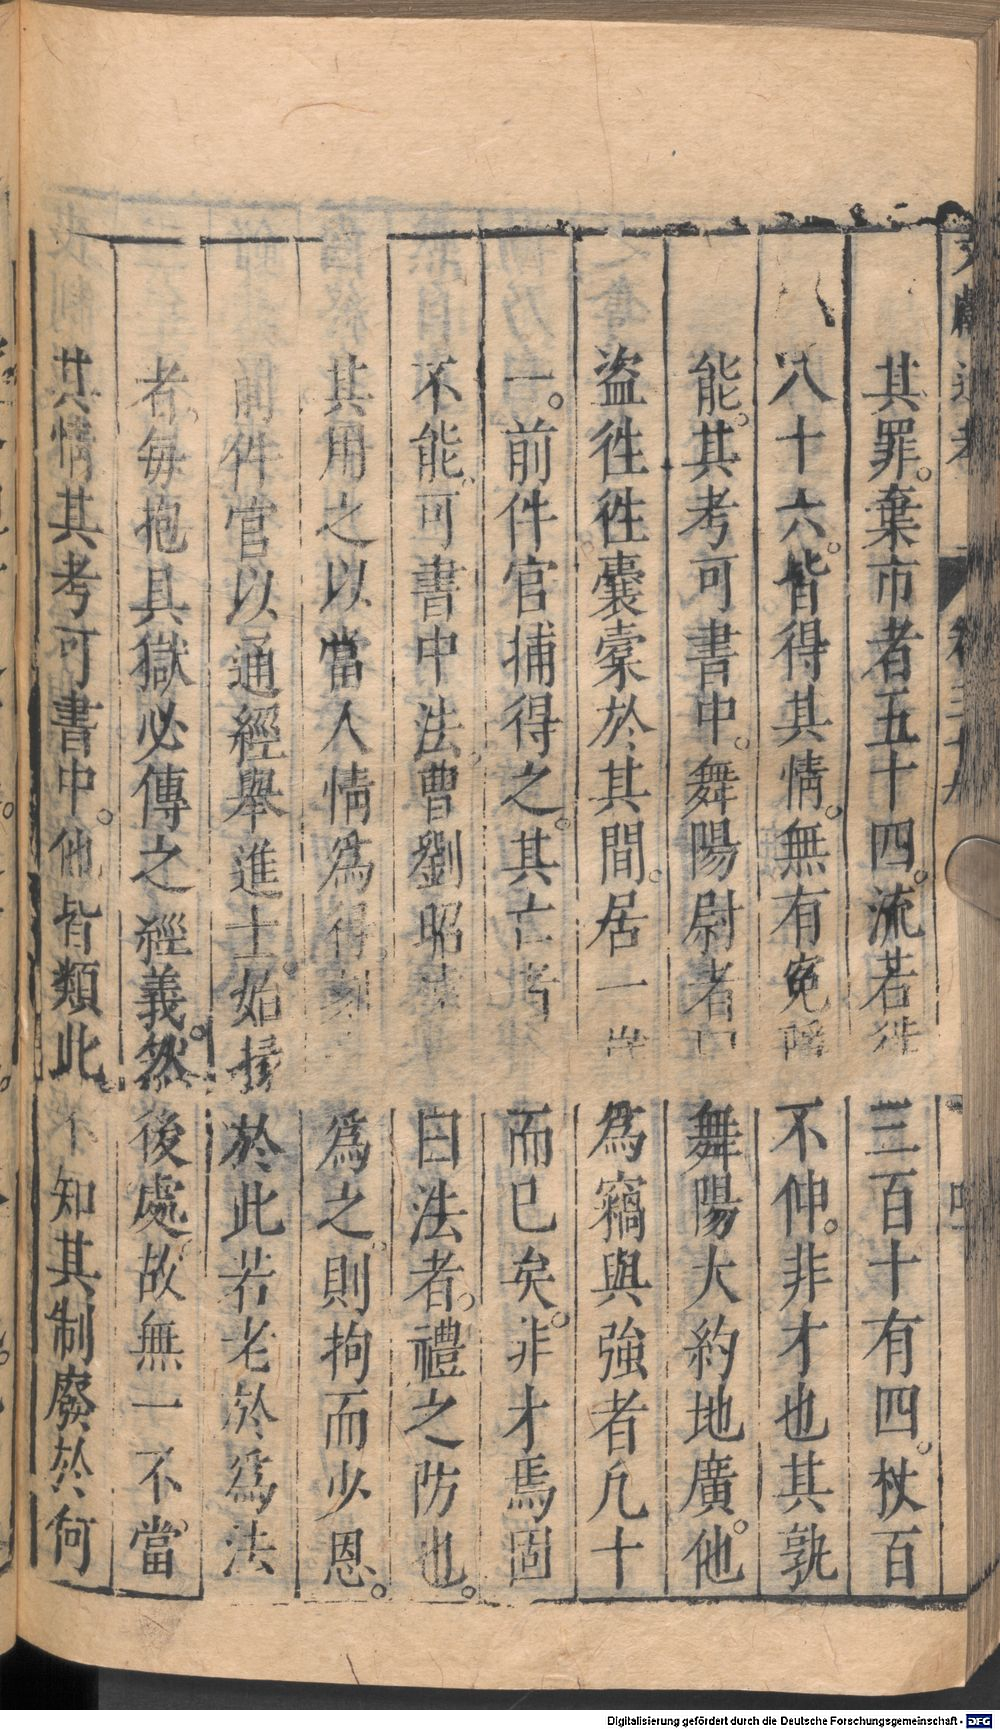 其罪。棄市者五十四。流若徒三百十有四。杖百
八十六。皆得其情。無有冤隱不伸。非才也其孰
能。其考可書中。舞陽尉者舞陽大約地廣。他
盜徃徃囊槖於其間。居一為竊與強者凢十
一。前件官捕得之。其亡者而已矣。非才焉固
不能可書中法曹劉昭遠曰法者。禮之防也。
其用之以當人情爲得刻爲之則拘而少恩。
前件官以通經舉進士。始掾於此若老於爲法
者。毎抱具獄必傳之經義。然後處故無一不當。
其情其考可書中。他皆類此不知其制廢於何
Digitalisierung gefördert durch die Deutsche Forschungsgemeinschaft - DFG